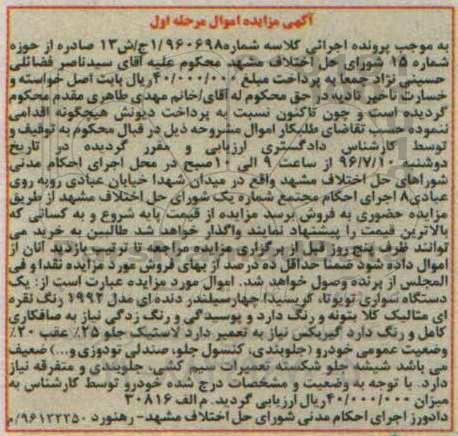 آگهی مزایده اموال مرحله اول
به موجب پرونده اجرائی کلاسه شماره۱/۹۶۰۶۹۸ج/ش۱۳ صادره از حوزه
شماره ۱۵ شورای حل اختلاف مشهد محکوم علیه آقای سیدناصر فضائلی
حسینی نژاد جمعا به پرداخت مبلغ ۴۰/۰۰۰/۰۰۰ریال بابت اصل خواسته و
خسارت تاخیر تادیه در حق محکوم له آقای/خانم مهدی طاهری مقدم محکوم
گردیده است و چون تاکنون نسبت به پرداخت دیونش هیچگونه اقدامی
ننموده حسب تقاضای طلبکار اموال مشروحه ذیل در قبال محکوم به توقیف و
توسط کارشناس دادگستری ارزیابی و مقرر گردیده در تاریخ
دوشنبه ۹۶/۷/۱۰ از ساعت ۹ الی ۱۰صبح در محل اجرای احکام مدنی
شوراهای حل اختلاف مشهد واقع در میدان شهدا خیابان عبادی روبه روی
عبادی۸ اجرای احکام مجتمع شماره یک شورای حل اختلاف مشهد از طریق
مزایده حضوری به فروش برسد مزایده از قیمت پایه شروع و به کسانی که
بالاترین قیمت را پیشنهاد نمایند واگذار خواهد شد طالبین به خرید می
توانند ظرف پنج روز قبل از برگزاری مزایده مراجعه تا ترتیب بازدید آنان از
اموال داده شود ضمنا حداقل ده درصد از بهای فروش مورد مزایده نقدا و فی
المجلس از برنده وصول خواهد شد. اموال مورد مزایده عبارت است از: یک
دستگاه سواری تویوتا، کریسیدا چهارسیلندر دنده ای مدل ۱۹۹۲ رنگ نقره
ای متالیک کلا بتونه و رنگ دارد و پوسیدگی و رنگ زدگی نیاز به صافکاری
کامل و رنگ دارد گیربکس نیاز به تعمیر دارد لاستیک جلو ۲۵٪ عقب ۲۰٪
وضعیت عمومی خودرو (جلوبندی، کنسول جلو، صندلی تودوزی و...) ضعیف
می باشد شیشه جلو شکسته تعمیرات سیم کشی، جلوبندی و متفرقه نیاز
دارد. با توجه به وضعیت و مشخصات درج شده خودرو توسط کارشناس به
میزان ۴۰/۰۰۰/۰۰۰ریال ارزیابی گردید. م الف ۳۰۸۱۶
دادورز اجرای احکام مدنی شورای حل اختلاف مشهد- رهنورد ۹۶۱۳۲۳۵۰/م